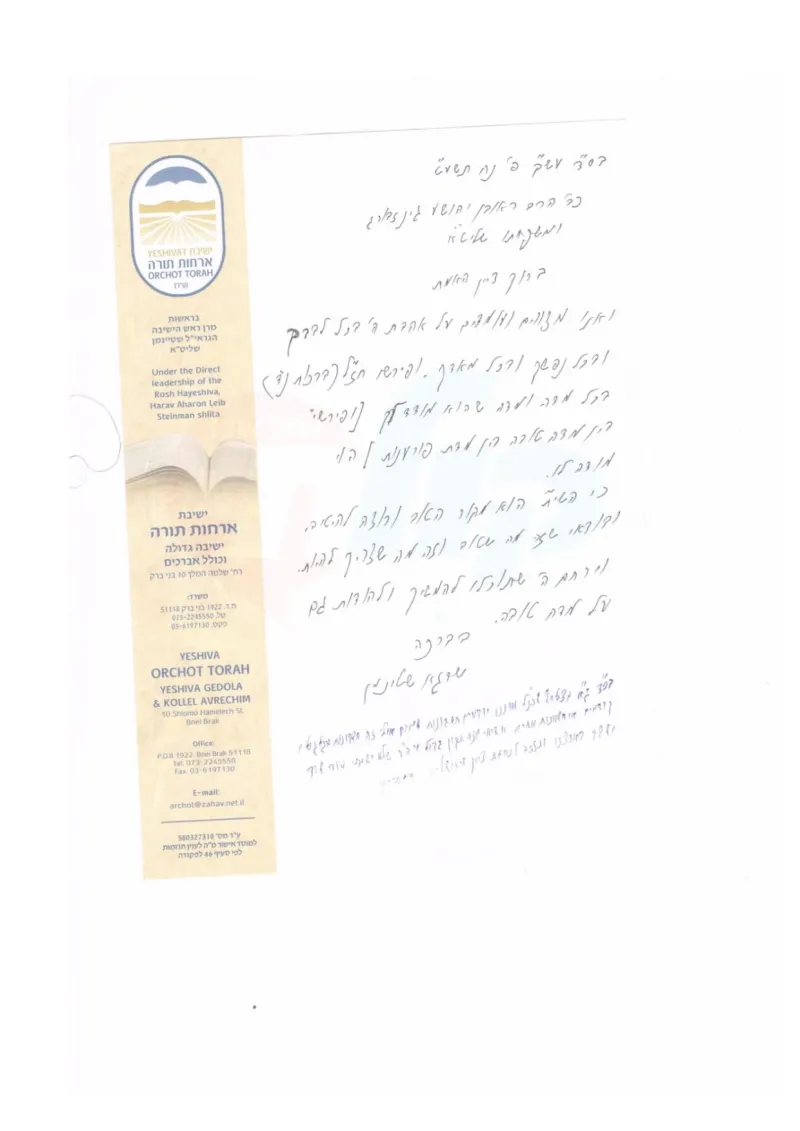 YESHIVAT ישיבת
ארחות תורה
ORCHOT TORAH
בראשות
מרן ראש הישיבה
הגראי"ל שטיינמן
שליט"א
Under the Direct
leadership of the
Rosh Hayeshiva,
Harav Aharon Leib
Steinman shlita
ישיבת
ארחות תורה
ישיבה גדולה
וכולל אברכים
רח' שלמה המלך 10 בני ברק
משרד:
ת.ד. 1922 בני ברק 51118
טל. 073-2245550
פקס. 03-6197130
YESHIVA
ORCHOT TORAH
YESHIVA GEDOLA
& KOLLEL AVRECHIM
10 Shlomo Hamelech St.
Bnei Brak
Office:
P.O.B 1922 Bnei Brak 51118
Tel. 073-2245550
Fax. 03-6197130
E-mail:
archot@zahav.net.il
ע"ר מס' 580327310
למוסד אישור מ"ה לענין תרומות
לפי סעיף 46 לפקודה
בס"ד עש"ק פ' נח תשע"ט
כב' הרב ראובן יהושע גינזבורג
ומשפחתו שליט"א
ברוך דיין האמת
ואנו מצווים ועומדים על אהבת ה' בכל לבבך
ובכל נפשך ובכל מאדך. ופירשו חז"ל (ברכות נד)
בכל מדה ומדה שהוא מודד לך (ופירש"י
בין מדה טובה בין מדת פורענות) הוי
מודה לו.
כי השי"ת הוא מקור הטוב ורוצה להיטיב,
ובודאי שזה מה שטוב וזה מה שצריך להיות.
וירחם ה' שתוכלו להמשיך ולהודות גם
על מדה טובה.
בברכה
שרגא שטינמן